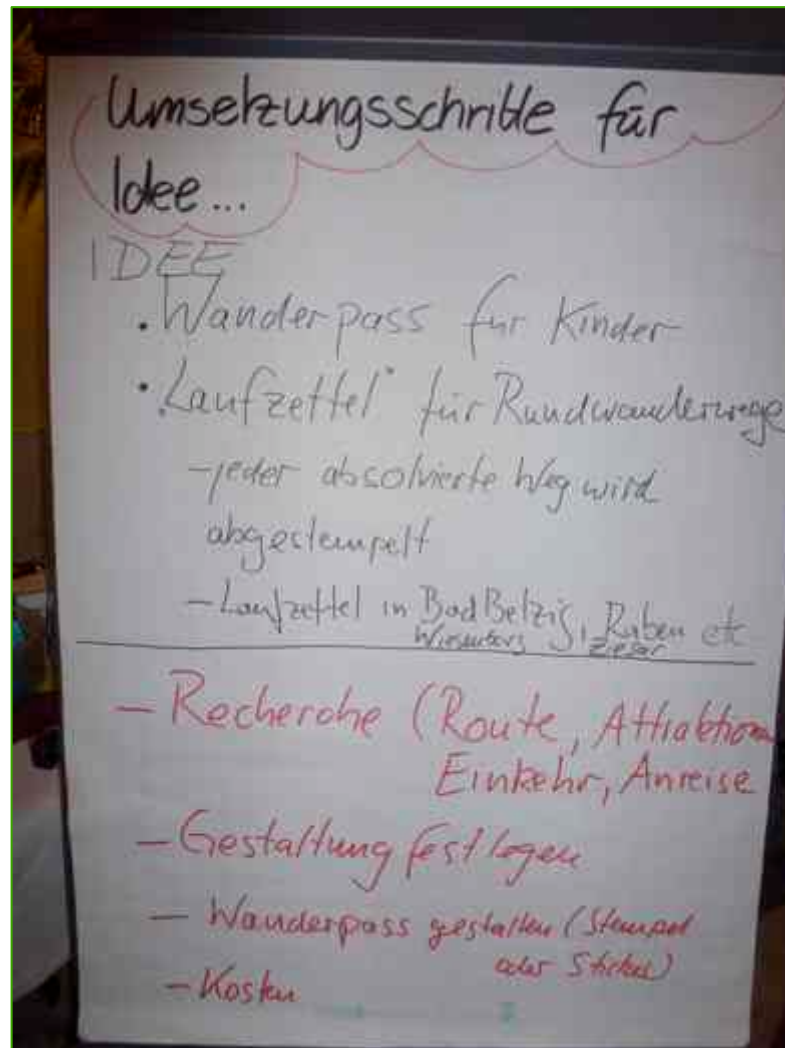 Umsetzungsschritte für
Idee...
IDEE
• Wanderpass für Kinder
• „Laufzettel" für Rundwanderwege
- jeder absolvierte Weg wird
abgestempelt
- Laufzettel in Bad Belzig, Raben etc
Wiesenburg, Ziesar
- Recherche (Route, Attraktion
Einkehr, Anreise
- Gestaltung festlegen
- Wanderpass gestalten (Stempel
oder Sticker)
- Kosten